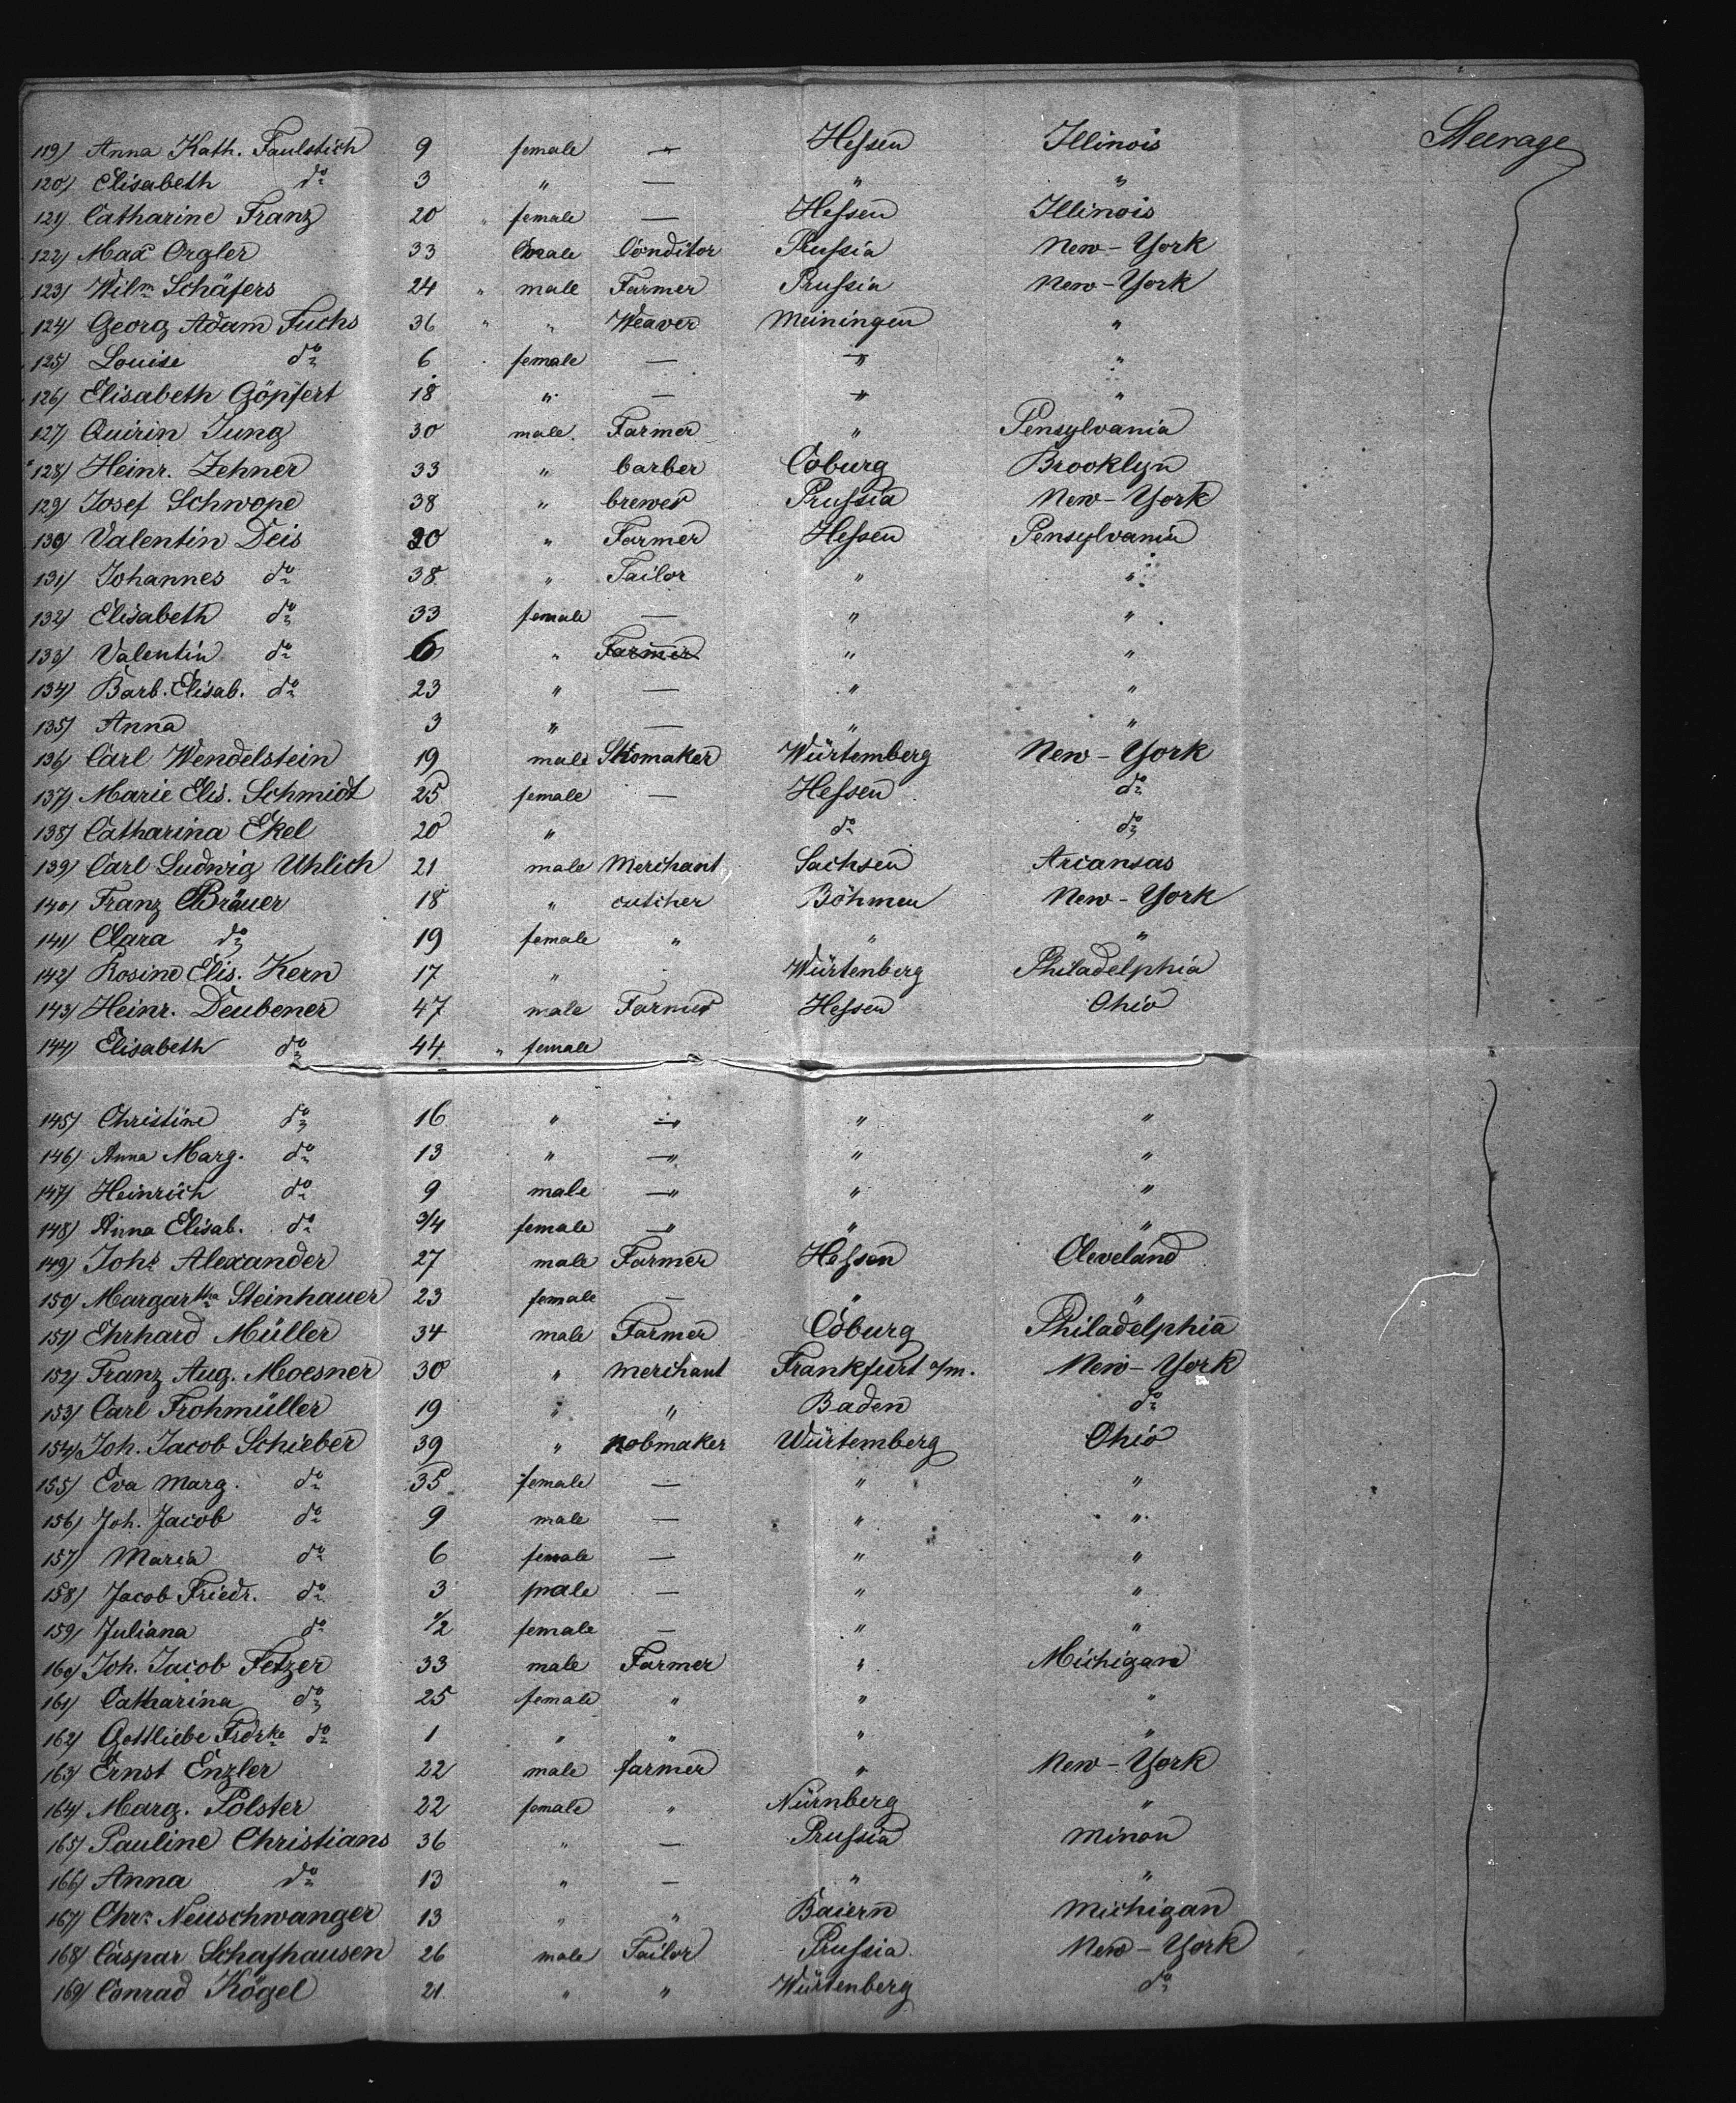 119) Anna Kath. Faulstich 9 female — Hessen Illinois Steerage
120) Elisabeth do 3 " — " "
121) Catharine Franz 20 female — Hessen Illinois
122) Max Orgler 33 male Conditor Prussia New-York
123) Wilm Schäfers 24 " male Farmer Prussia New-York
124) Georg Adam Fuchs 36 " " Weaver Meiningen "
125) Louise do 6 female — " "
126) Elisabeth Göpfert 18 " — " "
127) Quirin Jung 30 male Farmer " Pensylvania
128) Heinr. Zehner 33 " barber Coburg Brooklyn
129) Josef Schwope 38 " brewer Prussia New-York
130) Valentin Deis 30 " Farmer Hessen Pensylvania
131) Johannes do 38 " Tailor " "
132) Elisabeth do 33 female — " "
133) Valentin do 6 " Farmer " "
134) Barb. Elisab. do 23 " — " "
135) Anna 3 " — " "
136) Carl Wendelstein 19 male Shomaker Würtemberg New-York
137) Marie Elis. Schmidt 25 female — Hessen do
138) Catharina Ekel 20 " do do
139) Carl Ludwig Uhlich 21 male Merchant Sachsen Arcansas
140) Franz Bräuer 18 " cutcher Böhmen New-York
141) Clara do 19 female " " "
142) Rosine Elis. Kern 17 " Würtenberg Philadelphia
143) Heinr. Deubener 47 male Farmer Hessen Ohio
144) Elisabeth do 44 " female
145) Christine do 16 " — " " "
146) Anna Marg. do 13 " — " " "
147) Heinrich do 9 male — " " "
148) Anna Elisab. do 3/4 female — " " "
149) Johs Alexander 27 male Farmer Hessen Cleveland
150) Margartha Steinhauer 23 female — " "
151) Ehrhard Müller 34 male Farmer Coburg Philadelphia
152) Franz Aug. Moesner 30 " merchant Frankfurt a/m. New-York
153) Carl Frohmüller 19 " " Baden do
154) Joh. Jacob Schieber 39 " nobmaker Würtemberg Ohio
155) Eva Marg. do 35 female — " "
156) Joh. Jacob do 9 male — " "
157) Maria do 6 female — " "
158) Jacob Friedr. do 3 male — " "
159) Juliana do 1/2 female — " "
160) Joh. Jacob Fetzer 33 male Farmer " Michigan
161) Catharina do 25 female " " "
162) Gottliebe Fsdrke do 1 " " " "
163) Ernst Enzler 22 male farmer " New-York
164) Marg. Polster 22 female " Nürnberg "
165) Pauline Christians 36 " — Prussia minon
166) Anna do 13 " — " "
167) Chrn Neuschwanger 13 " " Baiern Michigan
168) Caspar Schafhausen 26 male Tailor Prussia New-York
169) Conrad Kögel 21 " " Würtenberg do